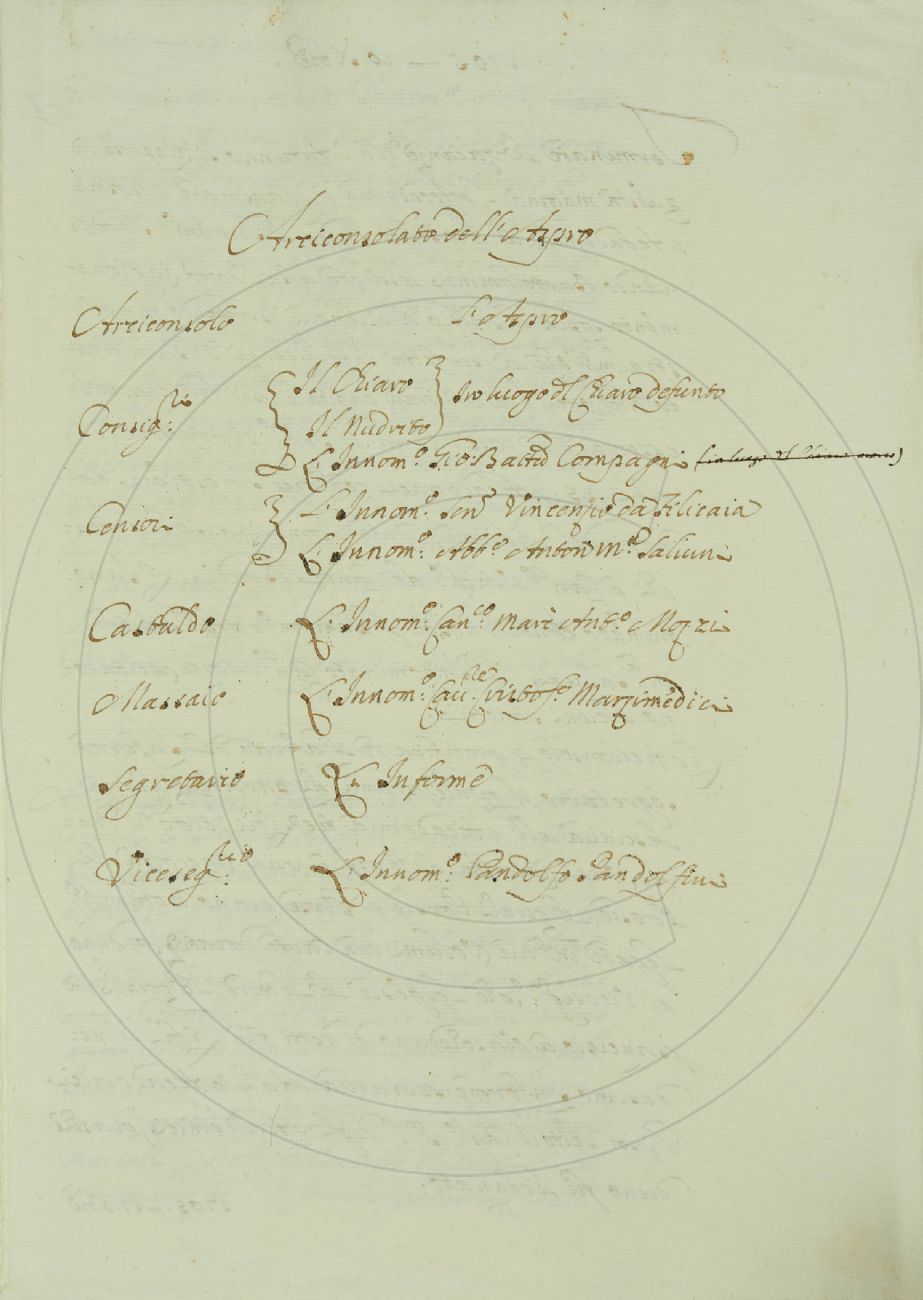 Arciconsolato dell'Aspro
Arciconsolo L'Aspro
Consig:ri Il Chiaro
Il Nudrito In luogo del Chiaro defunto
L'Innom:o Gio: Batta Compagni (in luogo del Chiaro morto)
Censori L'Innom:o Sen:r Vincenzio da Filicaia
L'Innom:o Abb:e Anton M:a Salvini
Castaldo L'Innom:o Can:co Marc'Ant:o Mozzi
Massaio L'Innom:o Cav:re Cristof:o Marzimedici
Segretario L'Informe
Viceseg:rio L'Innom:o Pandolfo Pandolfini